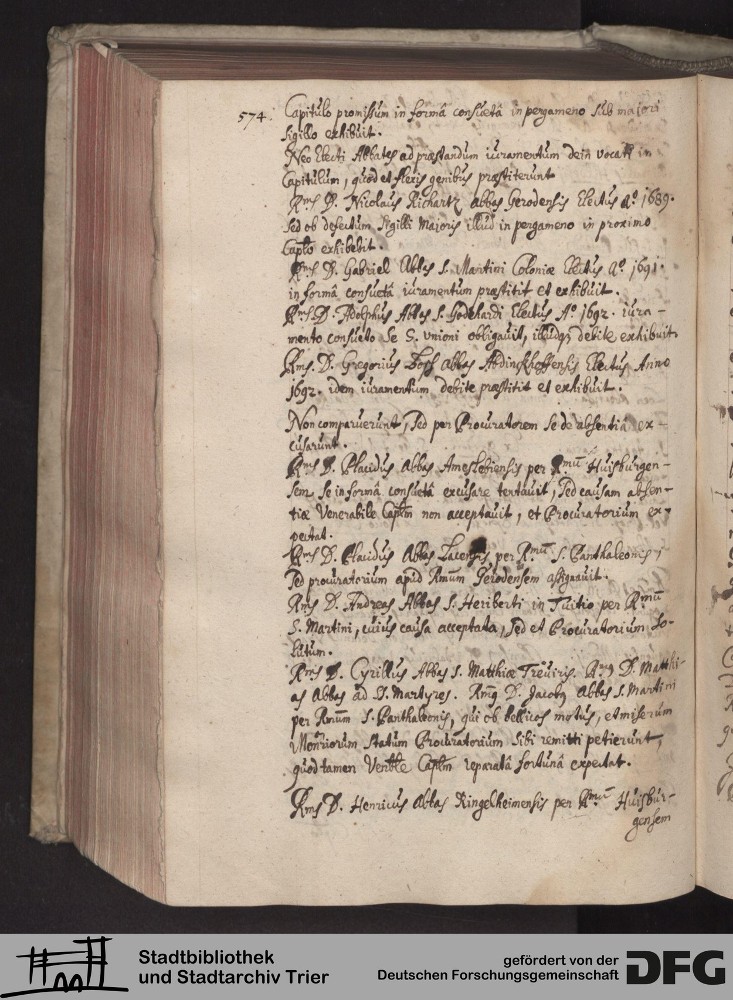 574. Capitulo promissum in formâ consuetâ in pergameno sub majori
sigillo exhibuit.
Neo Electi Abbates ad præstandum iuramentum dein vocati in
Capitulum, quod et flexis genibus præstiterunt
Rmg D. Nicolaus Richartz Abbas Gerodensis Electus aº. 1689.
sed ob defectum sigilli majoris illud in pergameno in proximo
Caplo exhibebit.
Rms D. Gabriel Abbas S. Martini Coloniæ Electus Aº. 1691.
in formâ consuetâ iuramentum præstitit et exhibuit.
Rms D. Adolphus Abbas S. Godehardi Electus Aº. 1692. iura-
mento consueto se S. unioni obligauit, illudq debite exhibuit.
Rms. D. Gregorius Abbas Abdinckhoffensis Electus Anno
1692. idem iuramentum debite præstitit et exhibuit.
Non comparuerunt, sed per Procuratorem se de absentiâ ex-
cusarunt.
Rms D. Placidus Abbas Ameslebiensis per Rmū Huisburgen-
sem se in formâ consuetâ excusare tentauit, sed causam absen-
tiæ Venerabile Caplm non acceptauit, et Procuratorium ex-
pectat.
Rms D. Placidus Abbas Lacensis per Rmū S. Panthaleonis
sed procuratorium apud Rmum Gerodensem assignauit.
Rms D. Andreas Abbas S. Heriberti in Tuitio per Rmū
S. Martini, cuius causa acceptata, sed et Procuratorium so-
lutum.
Rms D. Cyrillus Abbas S. Matthiæ Treuiris. Rmg D. Matthi-
as Abbas ad S. Martyres. Rmg D. Jacobg Abbas S. Martini
per Rmum S. Panthaleonis, qui ob bellicos motus, et miserum
Monriorum statum Procuratorium sibi remitti petierunt,
quod tamen Venble Caplm reparatâ fortunâ expectat.
Rms D. Henricus Abbas Ringelheimensis per Rmū Huisbur-
gensem
Stadtbibliothek
und Stadtarchiv Trier
gefördert von der
Deutschen Forschungsgemeinschaft
DFG